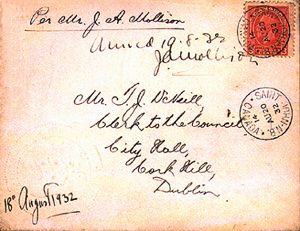 Per Mr. J. A. Mollison
Arrived 19.8.32
JAMollison
Mr. T. J. McNeill,
Clerk to the Council,
City Hall,
Cork Hill,
Dublin.
18th August 1932
SAINT JOHN. N.B.
14
AU 20
32
CANADA